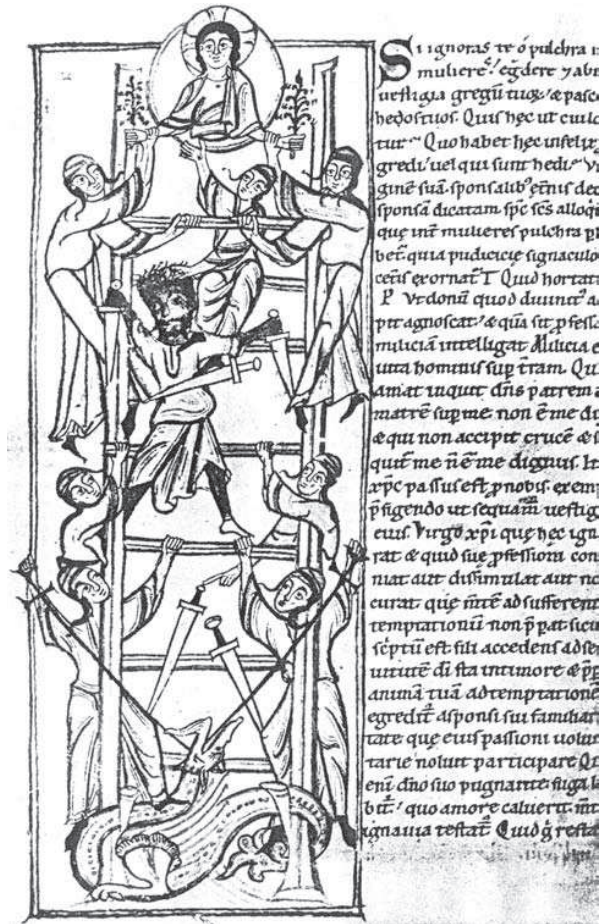 Si ignoras te o pulchra i
muliereˢ. egdere ⁊ abi
uestigia gregū tuoꝝ. & pasce
hędos tuos. Quis hęc ut cui
tur. Quo habet hęc infelix
gredi. uel qui sunt hedi.
ginē suā sponsalib' etnis dec
sponsā dicatam spc scs alloq
quę int mulieres pulchra
bet. quia pudicicię signaculo
ceris exornat. T Quid hortat
P Vt donū quod diuinit' a
pit agnoscat. & quā sit ꝓfess
miliciā intelligat Milicia e
uita hominis sup tram. Qui
amat inquit dns patrem a
matrē sup me. non ē me di
& qui non accipit crucē & s
quit me n ē me dignus. It
xpc passus est ꝓ nobis. exem
p̄figendo ut sequam uestig
eius. Virgo xpi quę hec ign
rat & quid suę ꝓfessioni con
niat aut dissimulat aut nc
curat. quę mtē ad sufferen
temptationū non p̄parat sicu
scptū est fili accedens ad se
uitutē di sta in timore & p̄p
animā tuā ad temptationē
egredit a sponsi sui familiar
tate que eius passioni uolu
tarie noluit participare Q
eni dno suo pugnante fuga l
bit. quo amore caluerit mt
ignauia testat. Quid g resta